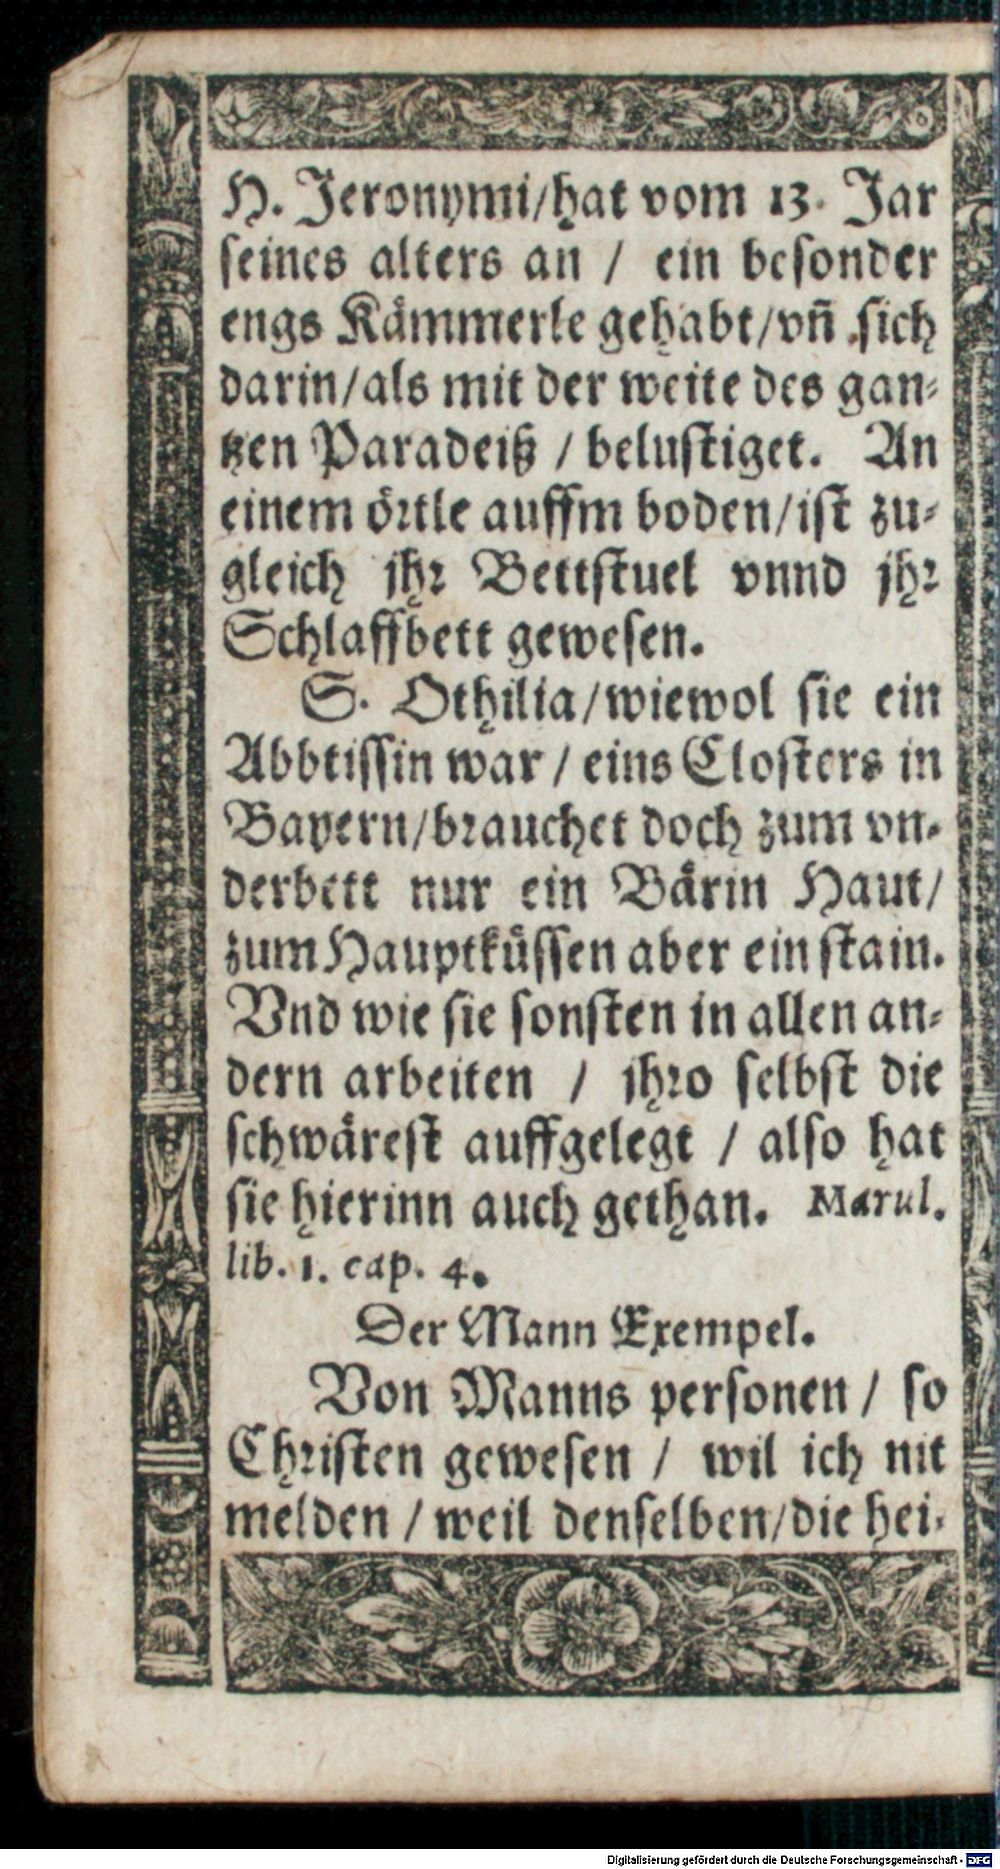 H. Jeronymi/hat vom 13. Jar
seines alters an / ein besonder
engs Kämmerle gehabt/vn̄ sich
darin/als mit der weite des gan-
tzen Paradeiß / belustiget. An
einem örtle auffm boden/ist zu-
gleich jhr Bettstuel vnnd jhr
Schlaffbett gewesen.
S. Othilia/wiewol sie ein
Abbtissin war / eins Closters in
Bayern/brauchet doch zum vn-
derbett nur ein Bärin Haut/
zum Hauptküssen aber ein stain.
Vnd wie sie sonsten in allen an-
dern arbeiten / jhro selbst die
schwärest auffgelegt / also hat
sie hierinn auch gethan. Marul.
lib. 1. cap. 4.
Der Mann Exempel.
Von Manns personen / so
Christen gewesen / wil ich nit
melden / weil denselben/die hei-
Digitalisierung gefördert durch die Deutsche Forschungsgemeinschaft - DFG